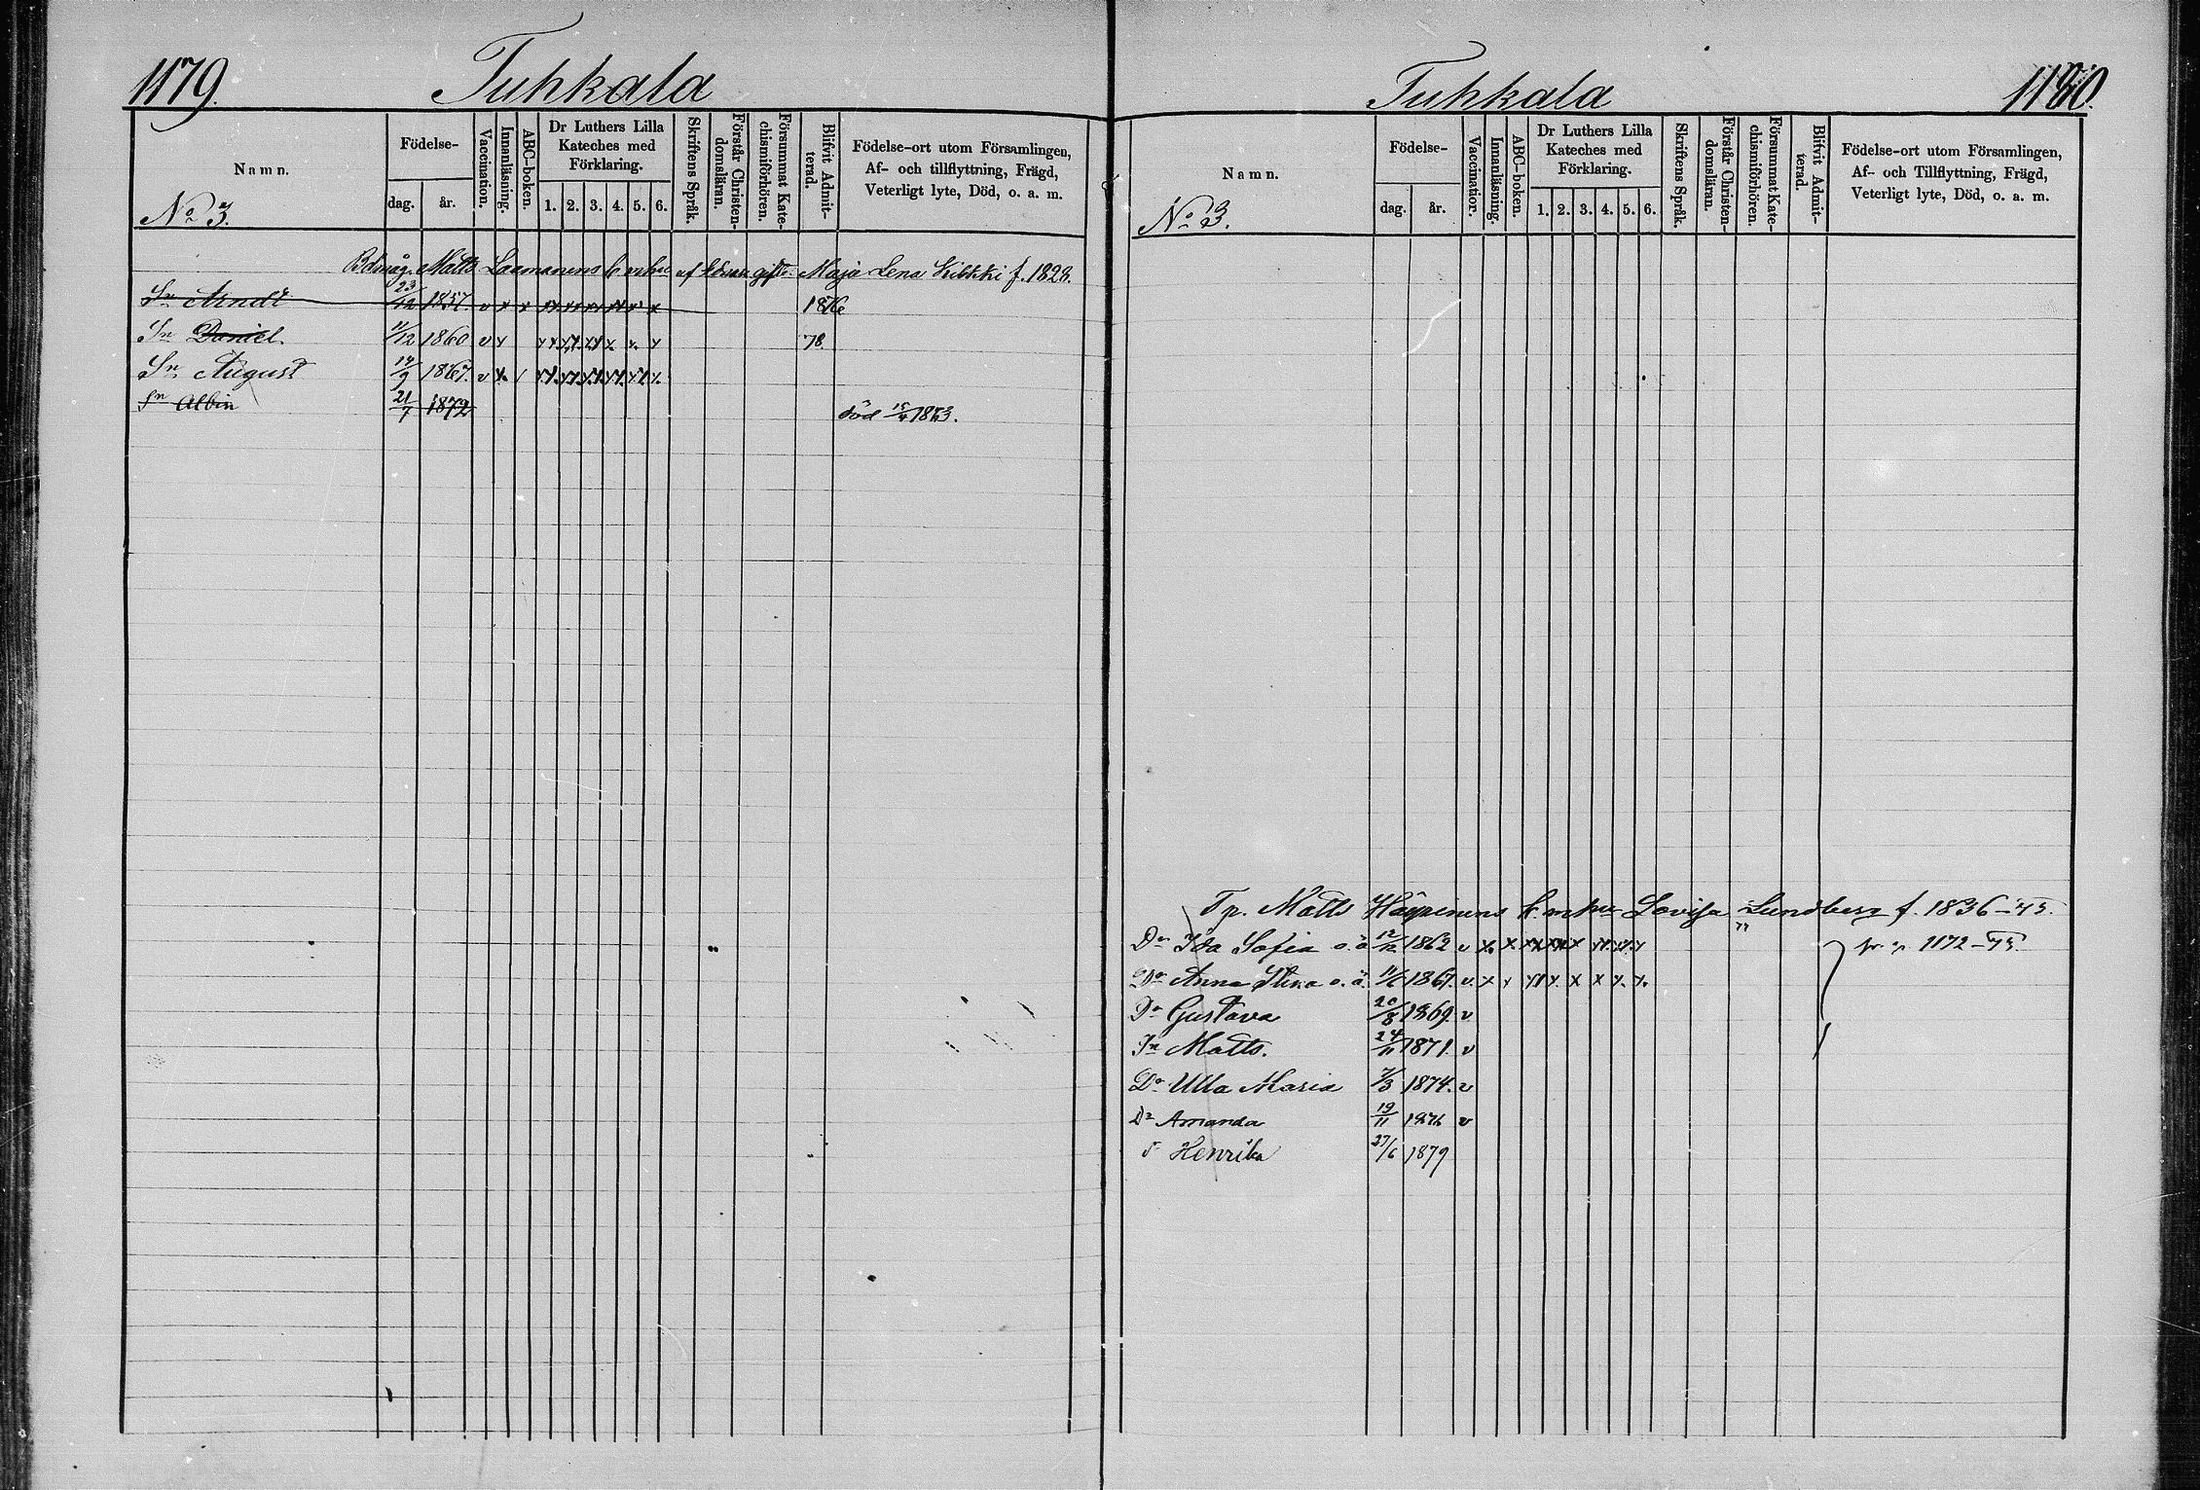 1179.
Tuhkala
Namn.
Födelse-
dag.
år.
Vaccination.
Innanläsning.
ABC-boken.
Dr Luthers Lilla
Kateches med
Förklaring.
1. 2. 3. 4. 5. 6.
Skriftens Språk.
Förstår Christen-
domsläran.
Försummat Kate-
chismiförhören.
Blifvit Admit-
terad.
Födelse-ort utom Församlingen,
Af- och tillflyttning, Frägd,
Veterligt lyte, Död, o. a. m.
No 3.
Matts Laamanens Maja Lena f. 1828.
Sn 23/12 1857. v x x 1876
Sn Daniel 11/12 1860 v x 78.
Sn August 14/9 1867. v x
Sn Albin 21/7 1872 död 1873.
Tuhkala
1180.
Namn.
Födelse-
dag.
år.
Vaccination.
Innanläsning.
ABC-boken.
Dr Luthers Lilla
Kateches med
Förklaring.
1. 2. 3. 4. 5. 6.
Skriftens Språk.
Förstår Christen-
domsläran.
Försummat Kate-
chismiförhören.
Blifvit Admit-
terad.
Födelse-ort utom Församlingen,
Af- och Tillflyttning, Frägd,
Veterligt lyte, Död, o. a. m.
No 3.
Tp. Matts Lovisa Lundberg f. 1836
Dr Ida Sofia o. ä. 12/12 1862 v 1172
Dr Anna Stina o. ä. 1867. v.
Dr Gustava 20/8 1869 v
Sn Matts. 24/11 1871. v
Dr Ulla Maria 7/3 1874. v
Dr Amanda 19/11 1876 v
Henrika 27/6 1879